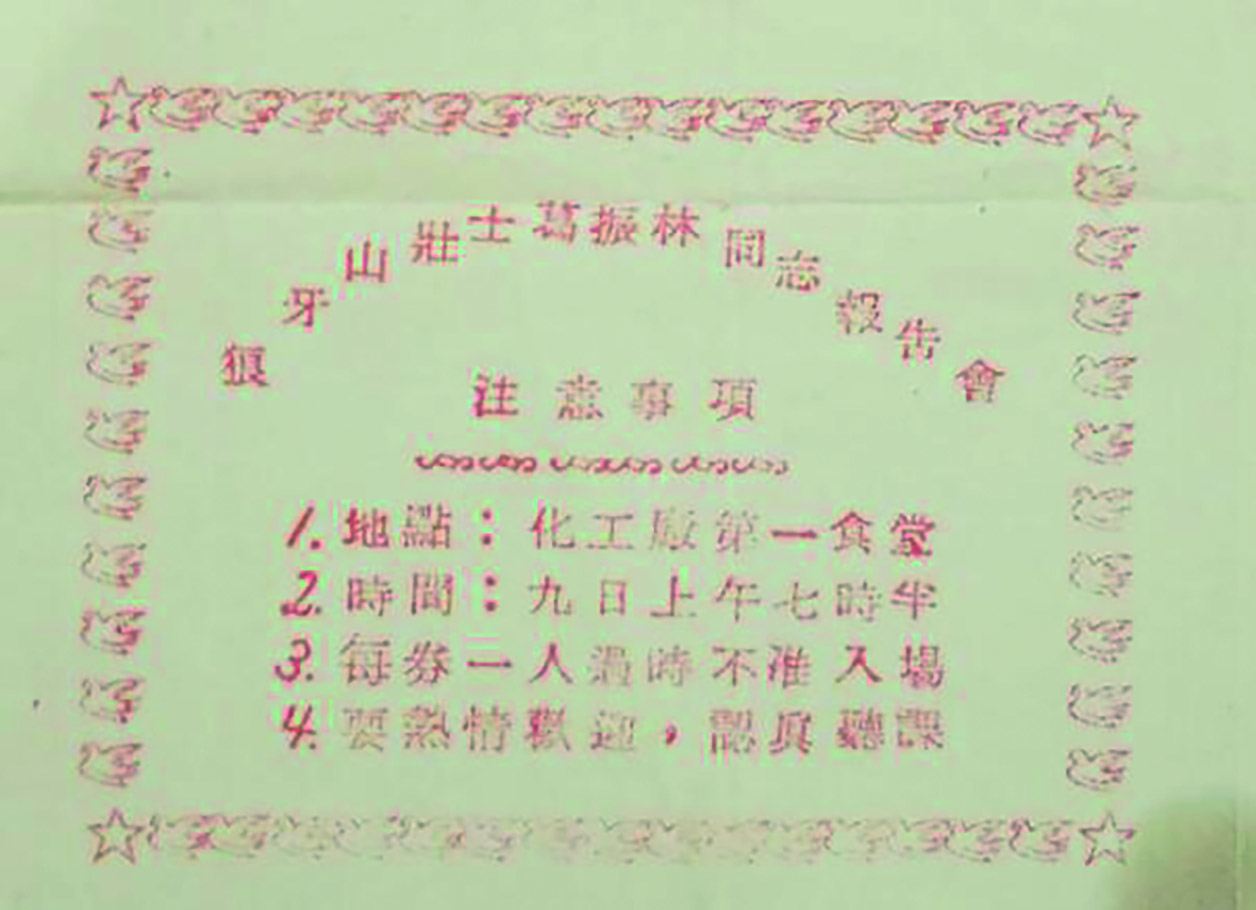 狼牙山壯士葛振林同志報告會
注意事項
1. 地點：化工廠第一食堂
2. 時間：九日上午七時半
3. 每券一人過時不准入場
4. 要熱情歡迎，認真聽課